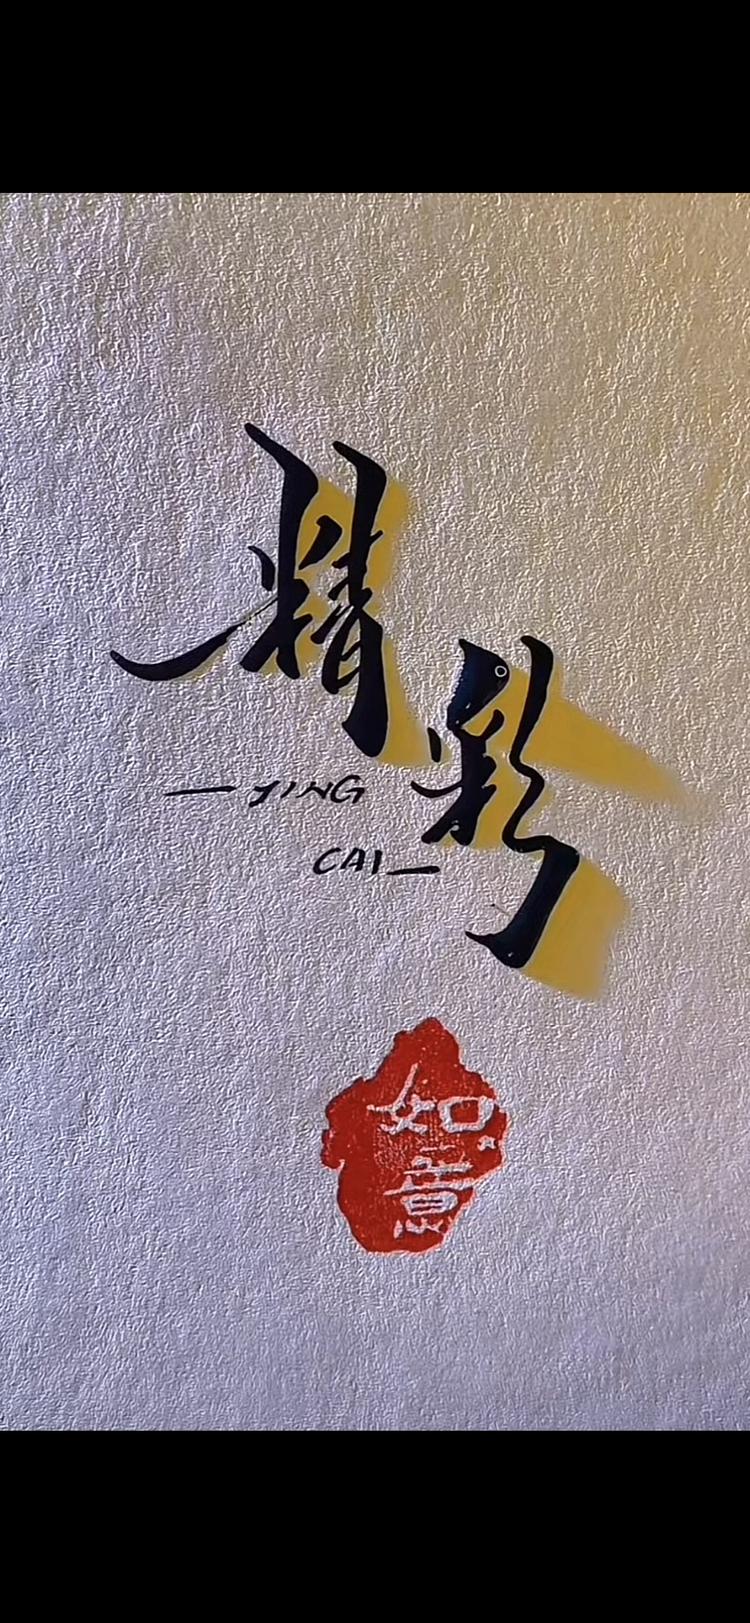 精彩
JING
CAI
如
意